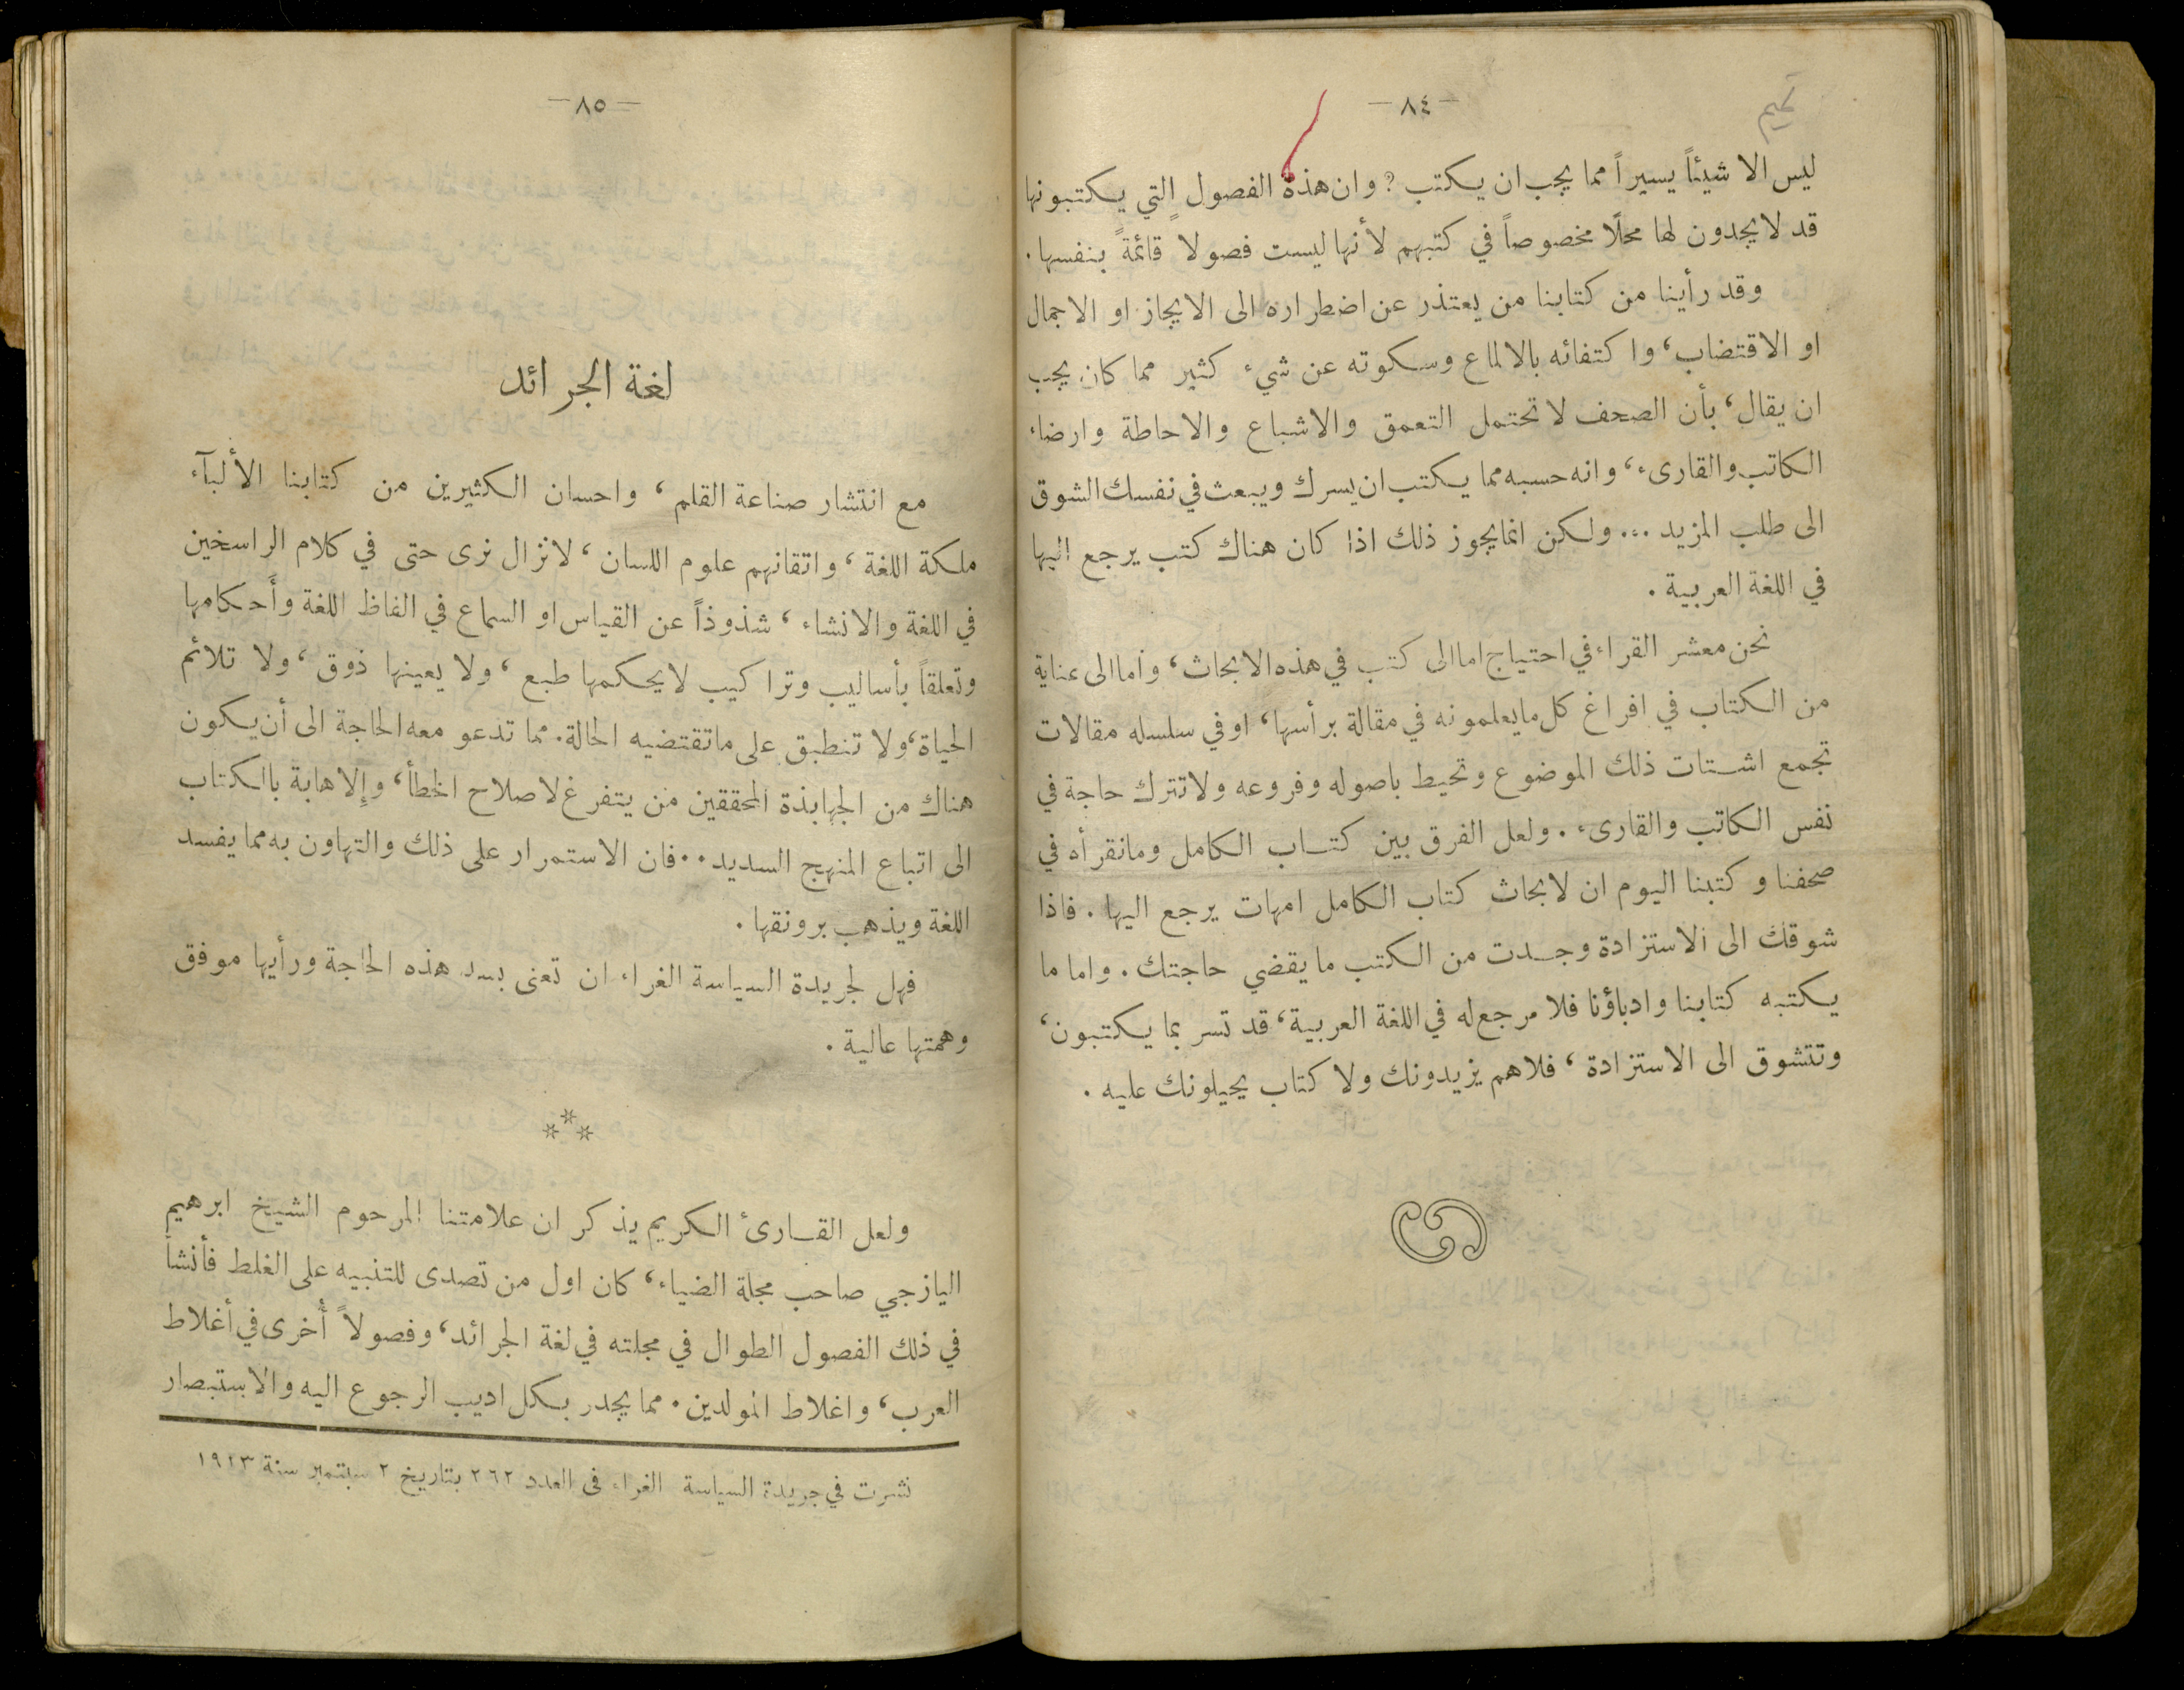 — ٨٤ —
ليس الا شيئاً يسيراً مما يجب ان يكتب ? وان هذه الفصول التي يكتبونها
قد لا يجدون لها محلًا مخصوصاً في كتبهم لأنها ليست فصولا قائمةً بنفسها .
وقد رأينا من كتابنا من يعتذر عن اضطراره الى الايجاز او الاجمال
او الاقتضاب، واكتفائه بالالماع وسكوته عن شيء كثير مما كان يجب
ان يقال، بأن الصحف لا تحتمل التعمق والاشباع والاحاطة وارضاء
الكاتب والقارىء، وانه حسبه مما يكتب ان يسرك ويبعث في نفسك الشوق
الى طلب المزيد ... ولكن انما يجوز ذلك اذا كان هناك كتب يرجع اليها
في اللغة العربية .
نحن معشر القراء في احتياج اما الى كتب في هذه الابحاث، واما الى عناية
من الكتاب في افراغ كل ما يعلمونه في مقالة برأسها، او في سلسله مقالات
تجمع اشتات ذلك الموضوع وتحيط باصوله وفروعه ولا تترك حاجة في
نفس الكاتب والقارىء . ولعل الفرق بين كتاب الكامل وما نقرأه في
صحفنا وكتبنا اليوم ان لابحاث كتاب الكامل امهات يرجع اليها . فاذا
شوقك الى الاستزادة وجدت من الكتب ما يقضي حاجتك . واما ما
يكتبه كتابنا وادباؤنا فلا مرجع له في اللغة العربية، قد تسر بما يكتبون،
وتتشوق الى الاستزادة ، فلاهم يزيدونك ولا كتاب يحيلونك عليه .
— ٨٥ —
لغة الجرائد
مع انتشار صناعة القلم ، واحسان الكثيرين من كتابنا الألبآء
ملكة اللغة ، واتقانهم علوم اللسان ، لا نزال نرى حتى في كلام الراسخين
في اللغة والانشاء ، شذوذاً عن القياس او السماع في الفاظ اللغة وأَحكامها
وتعلقاً بأساليب وتراكيب لا يحكمها طبع ، ولا يعينها ذوق ، ولا تلائم
الحياة، ولا تنطبق على ما تقتضيه الحالة. مما تدعو معه الحاجة الى أن يكون
هناك من الجهابذة المحققين من يتفرغ لاصلاح الخطأ، والاهابة بالكتاب
الى اتباع المنهج السديد.. فان الاستمرار على ذلك والتهاون به مما يفسد
اللغة ويذهب برونقها .
فهل لجريدة السياسة الغراء ان تعنى بسد هذه الحاجة ورأيها موفق
وهمتها عالية .
***
ولعل القارئ الكريم يذكر ان علامتنا المرحوم الشيخ ابرهيم
اليازجي صاحب مجلة الضياء، كان اول من تصدى للتنبيه على الغلط فأنشأ
في ذلك الفصول الطوال في مجلته في لغة الجرائد، وفصولاً أُخرى في أغلاط
العرب، واغلاط المولدين . مما يجدر بكل اديب الرجوع اليه والاستبصار
نشرت في جريدة السياسة الغراء في العدد ٢٦٢ بتاريخ ٢ سبتمبر سنة ١٩٢٣